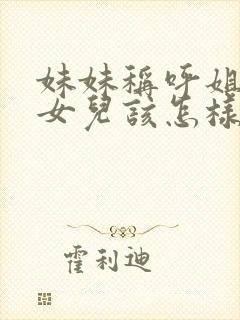 妹妹稱呼姐
女兒該怎樣
霍利迪